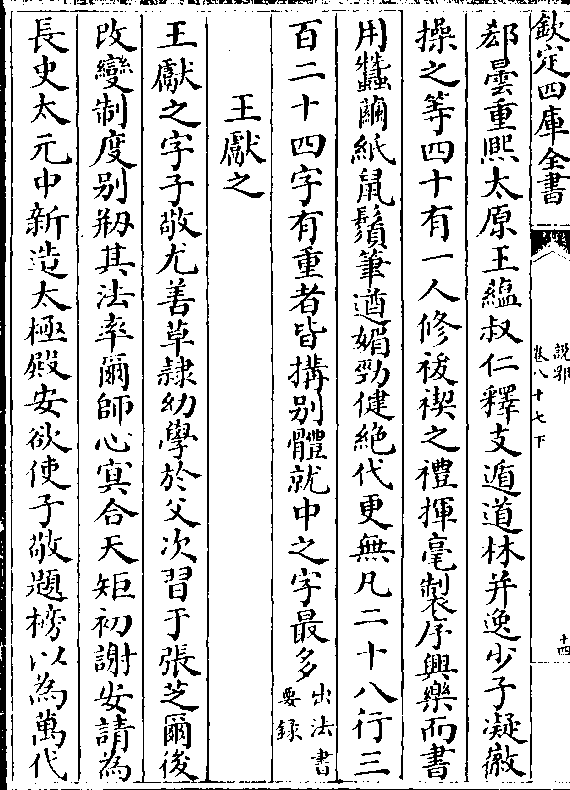 欽定四庫全書
說郛
卷八十七下
十四
郄曇重熙太原王蘊叔仁釋支遁道林并逸少子凝徽
操之等四十有一人修祓禊之禮揮毫製序興樂而書
用蠶繭紙鼠鬚筆遒媚勁健絶代更無凡二十八行三
百二十四字有重者皆搆别體就中之字最多出法書
要録
王獻之
王獻之字子敬尤善草隷幼學於父次習于張芝爾後
改變制度别剏其法率爾師心冥合天矩初謝安請為
長史太元中新造太極殿安欲使子敬題榜以為萬代